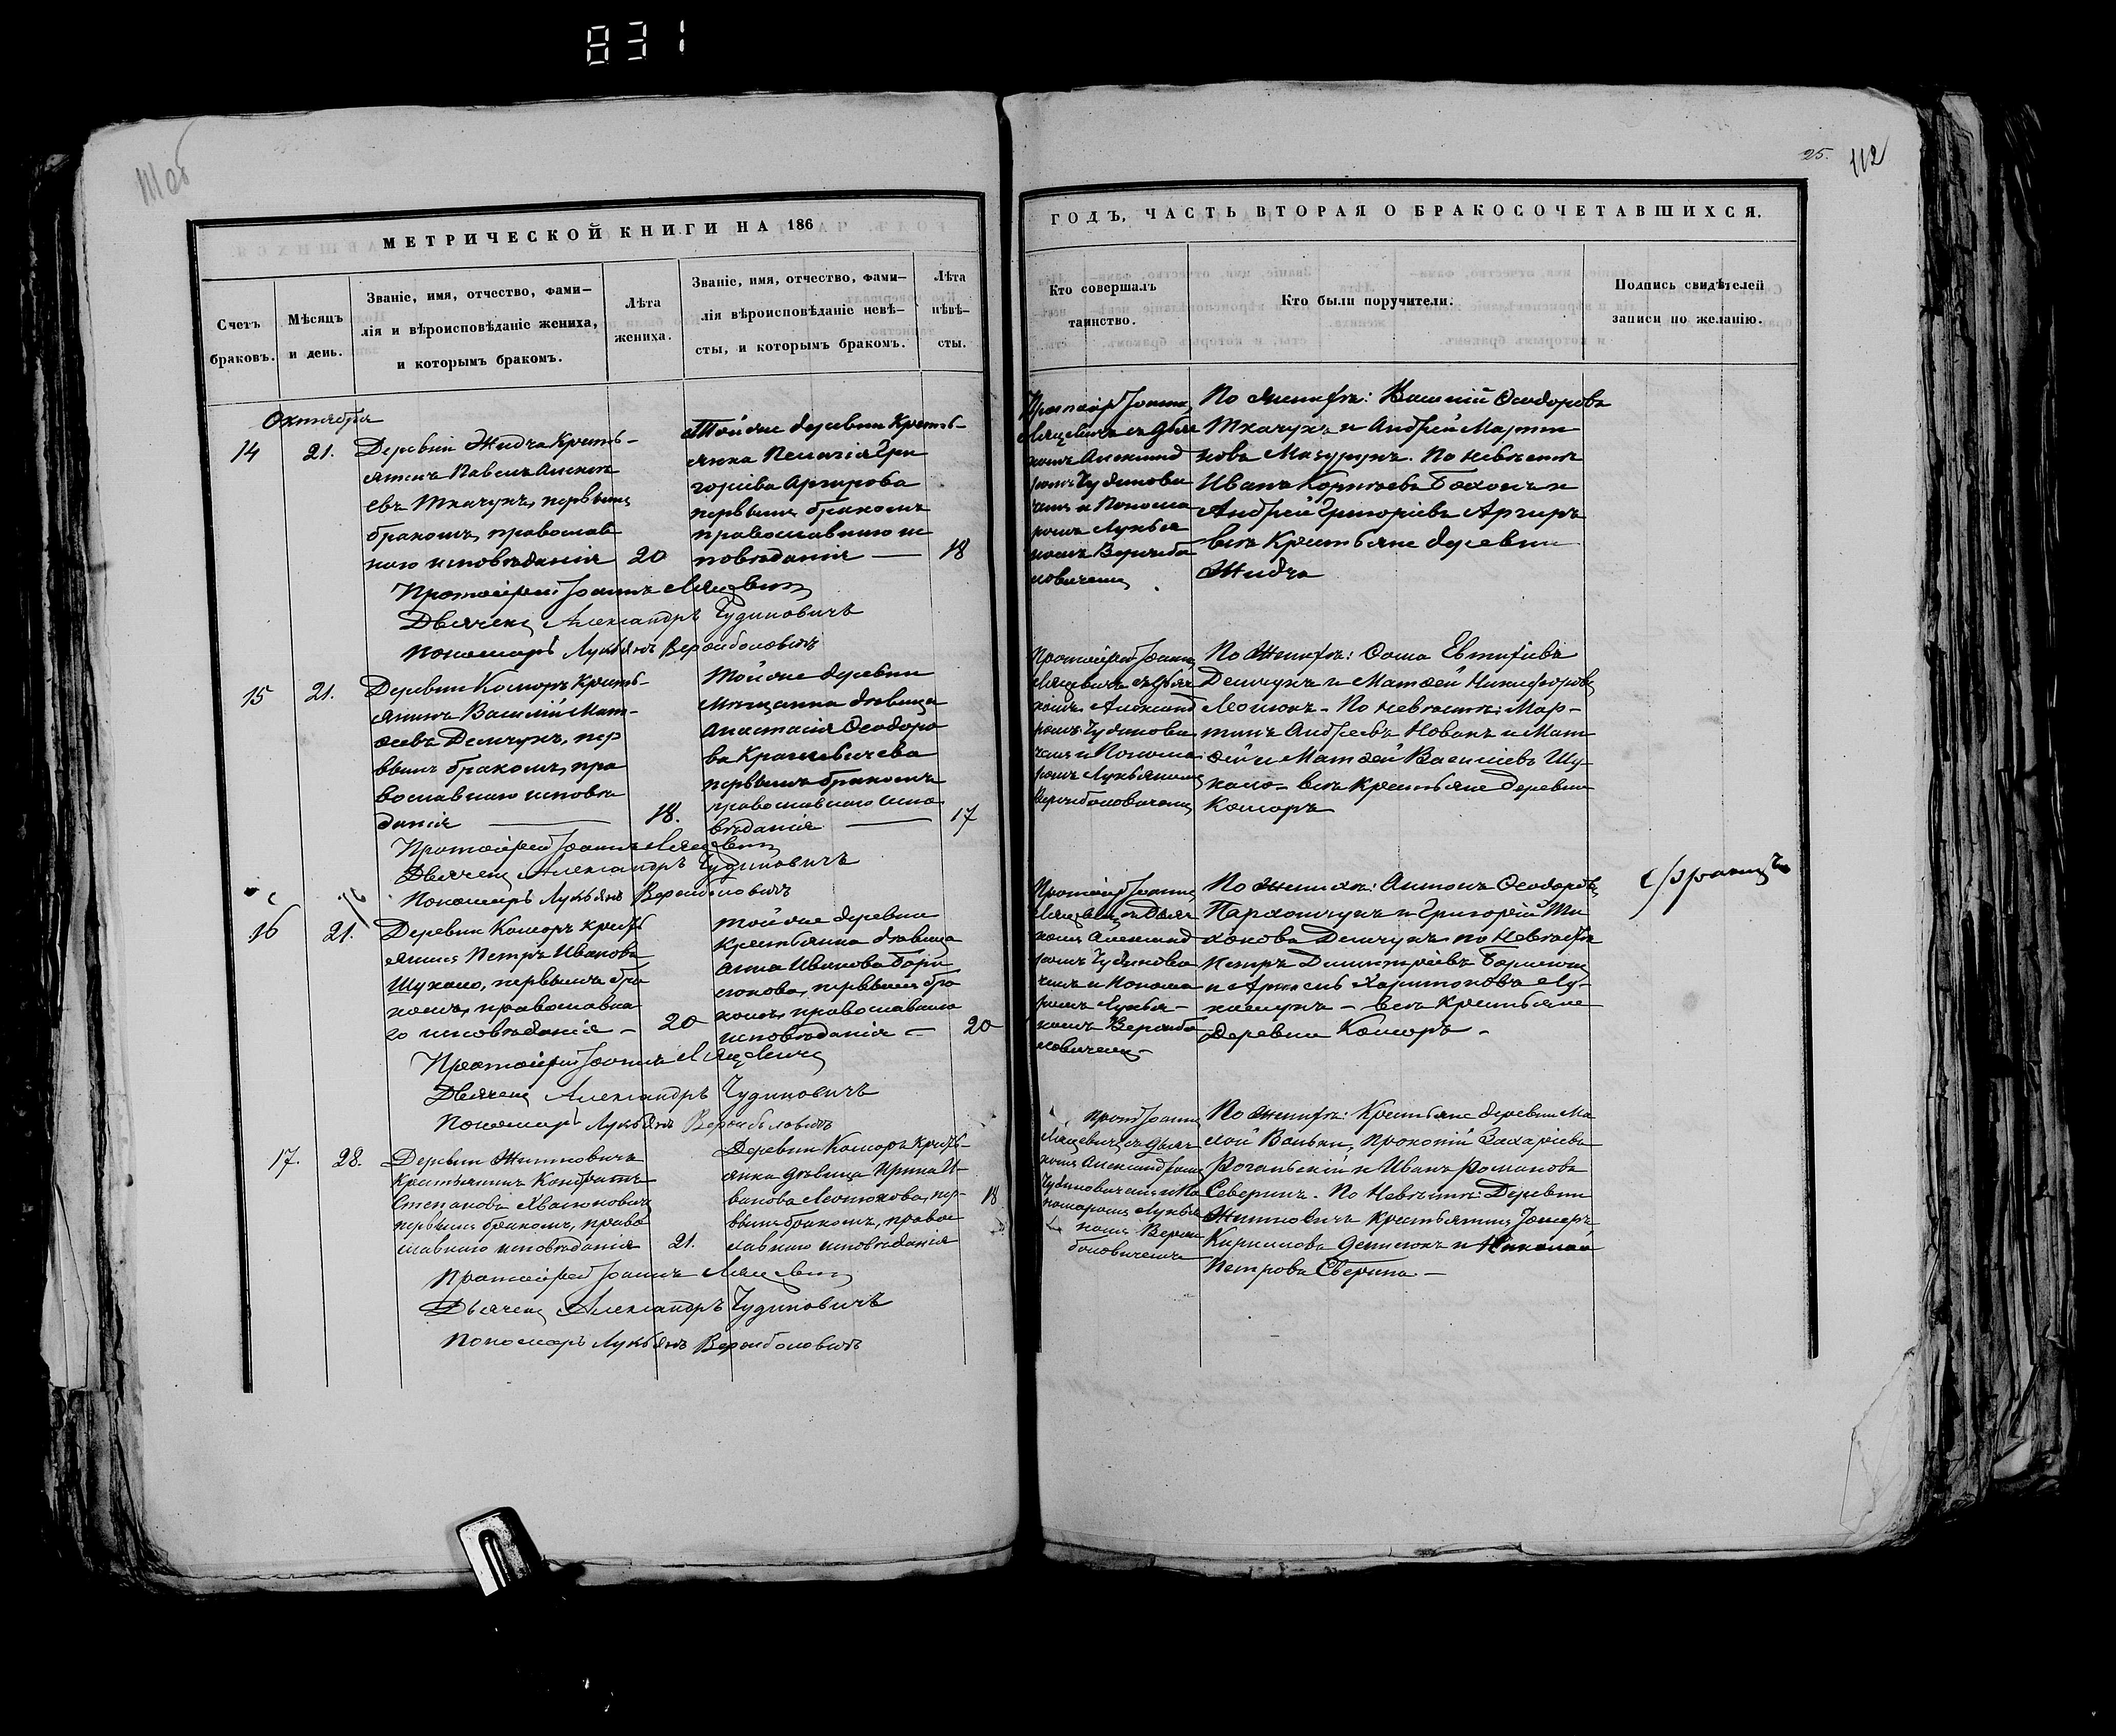 831
111 об
25.
112
МЕТРИЧЕСКОЙ КНИГИ НА 186
ГОДЪ, ЧАСТЬ ВТОРАЯ О БРАКОСОЧЕТАВШИХСЯ.
Счетъ
браковъ.
Мѣсяцъ
и день.
Званіе, имя, отчество, фами-
лія и вѣроисповѣданіе жениха,
и которымъ бракомъ.
Лѣта
жениха.
Званіе, имя, отчество, фами-
лія вѣроисповѣданіе невѣ-
сты, и которымъ бракомъ.
Лѣта
невѣ-
сты.
Кто совершалъ
таинство.
Кто были поручители.
Подпись свидѣтелей
записи по желанію.
Октября
14
21.
Деревни Жидча Кресть-
янинъ Павелъ
евъ Ткачукъ, первымъ
бракомъ, православ
наго исповѣданія
20
Той же деревни Кресть-
янка Пелагія Гри
горіева Аргирова
первымъ бракомъ
православнаго ис
повѣданія —
18
Протоіерей Іоаннъ
Ляцевичъ съ Дьяч
комъ Александ
ромъ Чудинови
чемъ и Понома
ремъ Лукья
номъ
По женихѣ: Василій Ѳеодоровъ
Ткачукъ и Андрей Марти
новъ Мазурукъ. По невѣстѣ
Иванъ Корнѣевъ и
Андрей Григоріевъ Аргиръ
всѣ Крестьяне деревни
Жидча
Протоіерей Іоаннъ Ляцевичъ
Дьячекъ Александръ Чудиновичъ
Пономарь Лукьянъ
15
21.
Деревни Комора Кресть-
янинъ Василій Мат-
ѳеевъ Демчукъ, пер
вымъ бракомъ, пра
вославнаго исповѣ
данія —
18.
Той же деревни
Мѣщанка дѣвица
Анастасія Ѳеодоро
ва
первымъ бракомъ
православнаго испо
вѣданія —
17
Протоіерей Іоаннъ
Ляцевичъ съ Дьяч
комъ Александ
ромъ Чудинови
чемъ и Понома
ремъ Лукьяномъ
По Женихѣ: Ѳома Евтихіевъ
Демчукъ и Матѳей Никифоровъ
По невѣстѣ: Мар-
тинъ Андреевъ Новакъ и Мат
ѳей и Матѳей Василіевъ Шу-
кало — всѣ Крестьяне деревни
Коморъ
Протоіерей Іоаннъ Ляцевичъ
Дьячекъ Александръ Чудиновичъ
Пономарь Лукьянъ
16
21.
Деревни Коморъ Кресть
янинъ Петръ Ивановъ
Шукало, первымъ бра
комъ, православна
го исповѣданія —
20
Той же деревни
Крестьянка дѣвица
Анна Иванова Бори
сюкова, первымъ бра
комъ, православнаго
исповѣданія —
20
Протоіерей Іоаннъ
Ляцевичъ съ Дьяч
комъ Александ
ромъ Чудинови
чемъ и Понома
ремъ Лукья-
номъ
По женихѣ: Антонъ Ѳеодоровъ
Пархомчукъ и Григорій Ти
хоновъ Демчукъ по Невѣстѣ
Петръ Димитріевъ Борисюкъ
и Харитоновъ
— всѣ Крестьяне
Деревни Коморъ —
Протоіерей Іоаннъ Ляцевичъ
Дьячекъ Александръ Чудиновичъ
Пономарь Лукьянъ
17.
28.
Деревни Житновичъ
Крестьянинъ Кондратъ
Степановъ
первымъ бракомъ, право
славнаго исповѣданія
21.
Деревни Коморъ Кресть-
янка дѣвица Ирина И-
ванова пер-
вымъ бракомъ, право
славнаго исповѣданія
18
Прот Іоаннъ
Ляцевичъ съ Дьяч
комъ Александромъ
Чудиновичемъ и По
номаремъ Лукья
номъ
По женихѣ: Крестьяне деревни Ма
лой Прокопій Захаріевъ
и Иванъ Романовъ
Северинъ. По Невѣстѣ: Деревни
Житновичъ крестьянинъ
Кирилловъ Денисюкъ и Николай
Петровъ
Протоіерей Іоаннъ Ляцевичъ
Дьячекъ Александръ Чудиновичъ
Пономарь Лукьянъ